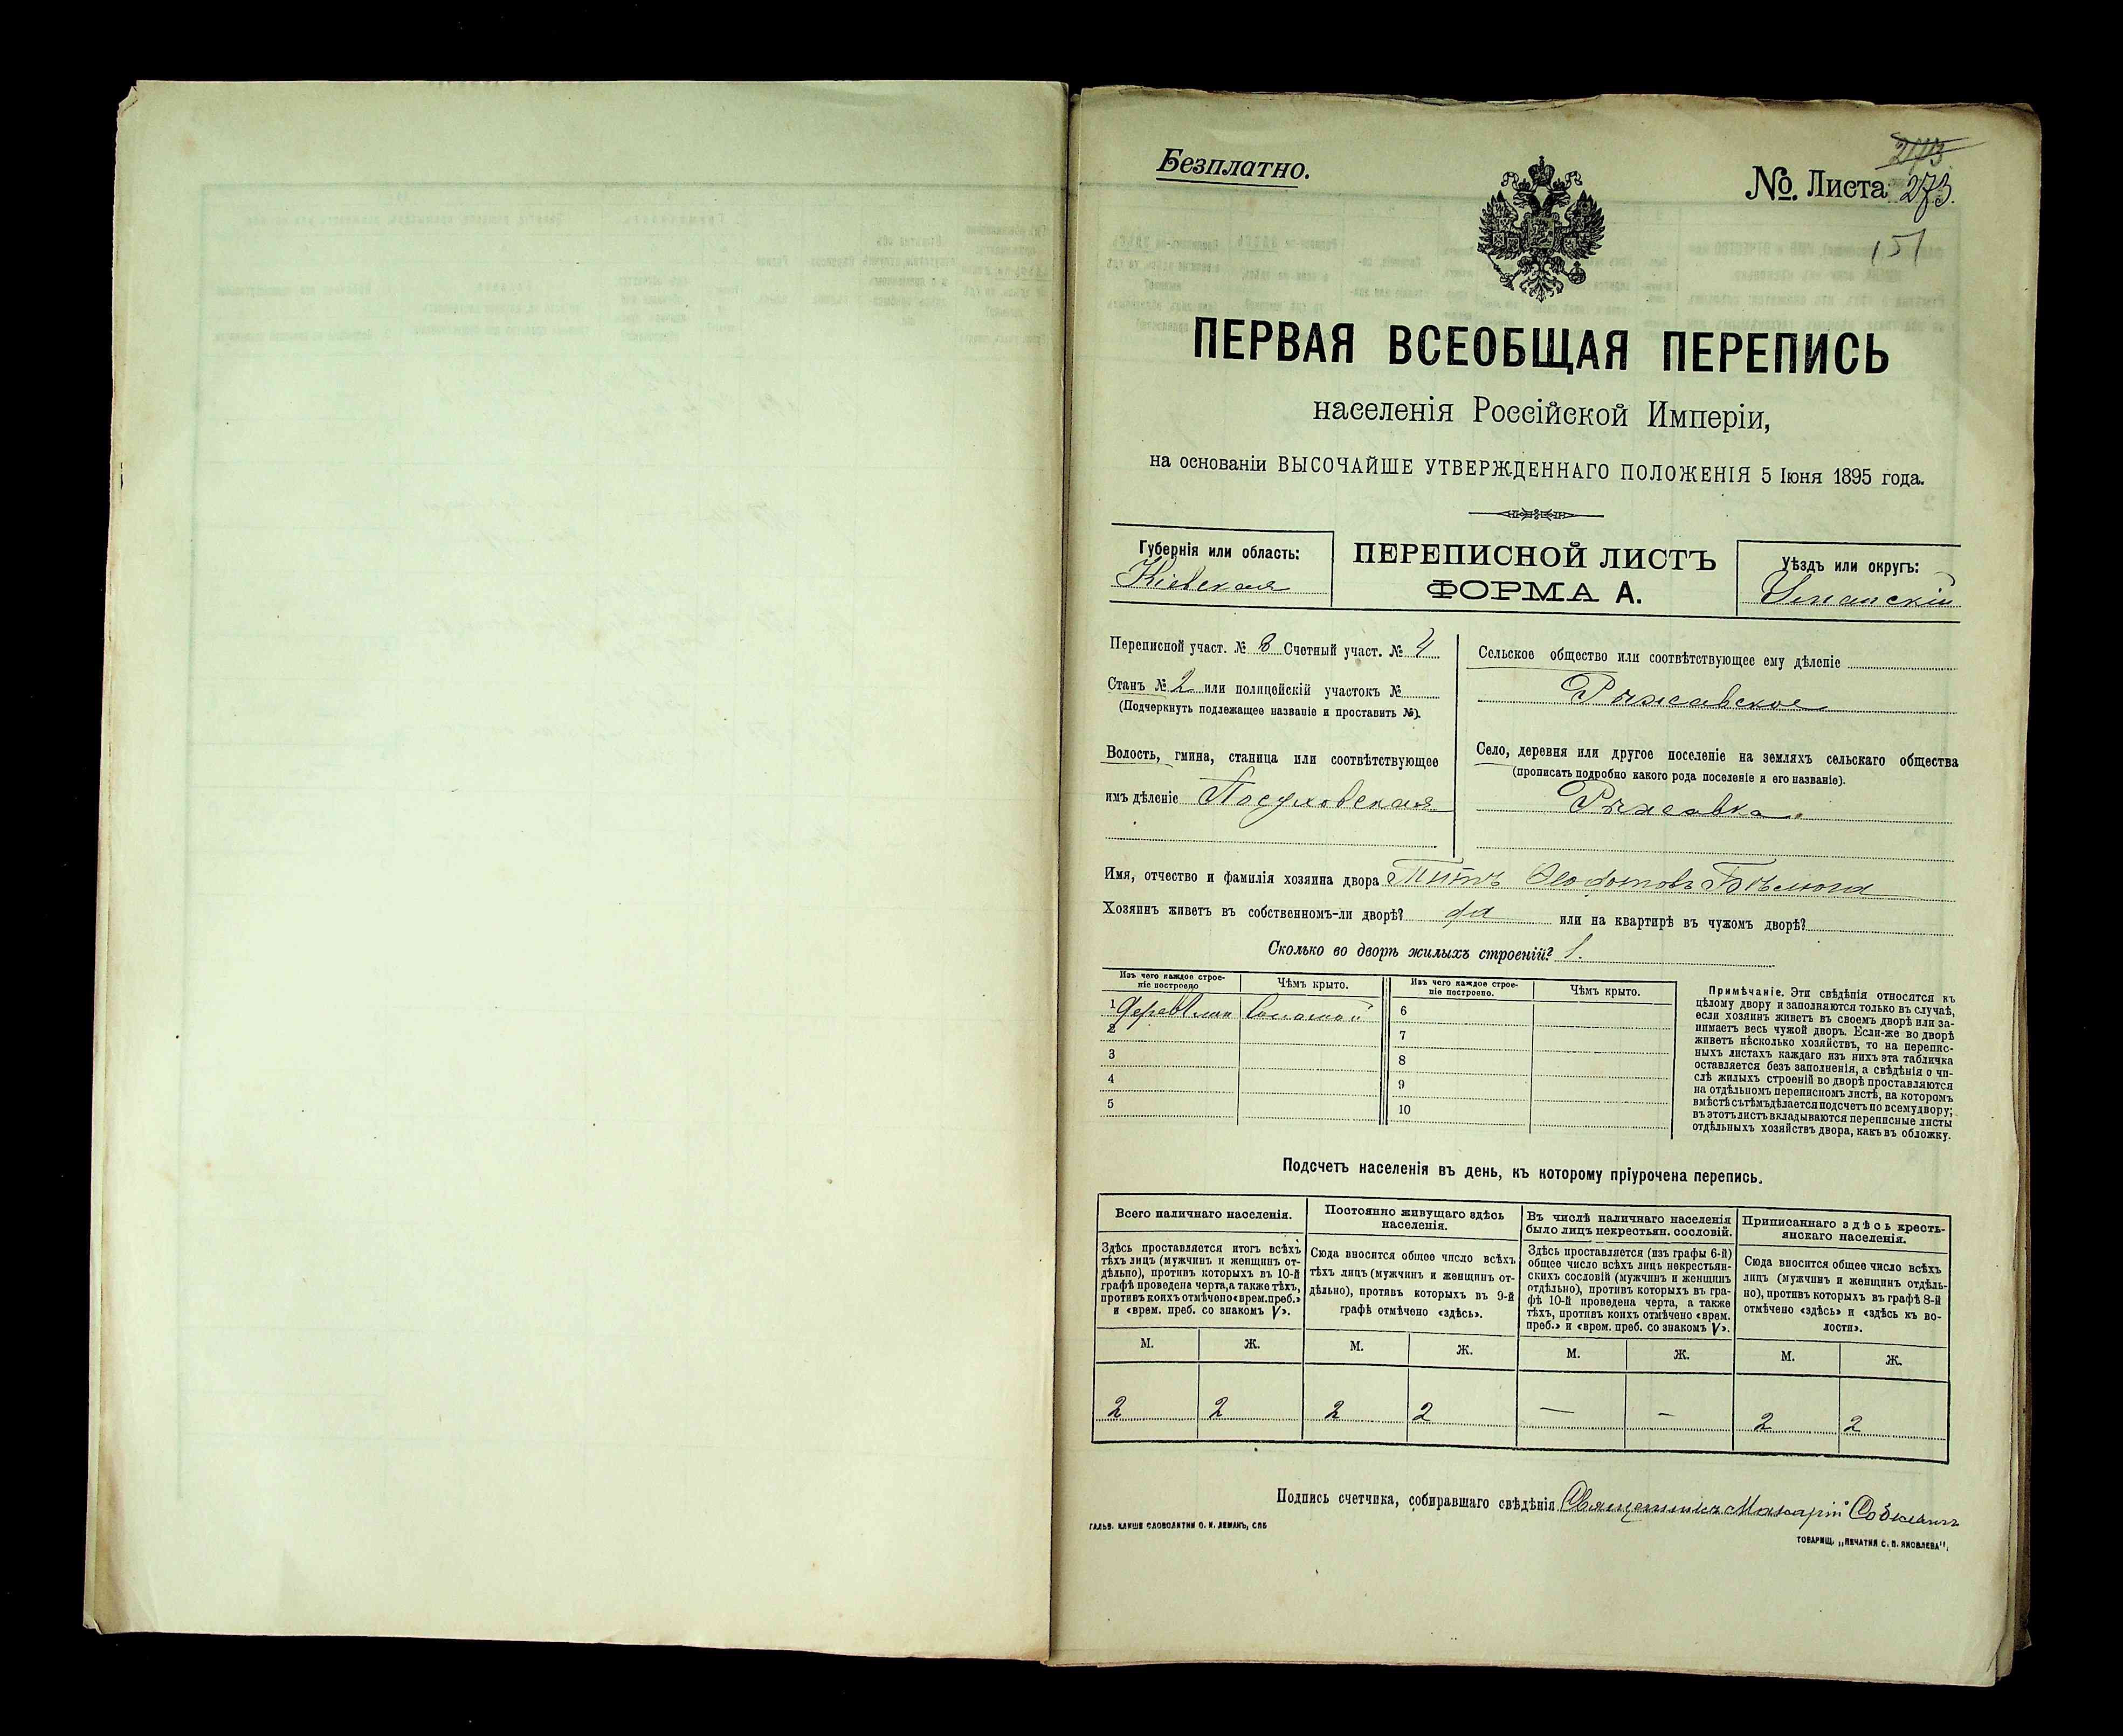 Безплатно.
273
№. Листа 273.
151
ПЕРВАЯ ВСЕОБЩАЯ ПЕРЕПИСЬ
населенія Россійской Имперіи,
на основаніи ВЫСОЧАЙШЕ УТВЕРЖДЕННАГО ПОЛОЖЕНІЯ 5 Іюня 1895 года.
Губернія или область:
Кіевская
ПЕРЕПИСНОЙ ЛИСТЪ
ФОРМА А.
Уѣздъ или округъ:
Уманскій
Переписной участ. № 8 Счетный участ. № 4
Станъ № 2 или полицейскій участокъ №
(Подчеркнуть подлежащее названіе и проставить №).
Волость, гмина, станица или соотвѣтствующее
имъ дѣленіе
Сельское общество или соотвѣтствующее ему дѣленіе
Рыжавское
Село, деревня или другое поселеніе на земляхъ сельскаго общества
(прописать подробно какого рода поселеніе и его названіе).
Рыжавка.
Имя, отчество и фамилія хозяина двора Титъ
Хозяинъ живетъ въ собственномъ-ли дворѣ? да или на квартирѣ въ чужомъ дворѣ?
Сколько во дворѣ жилыхъ строеній? 1.
Изъ чего каждое строе-
ніе построено
Чѣмъ крыто.
Изъ чего каждое строе-
ніе построено.
Чѣмъ крыто.
1 Соломой 6
2 7
3 8
4 9
5 10
Примѣчаніе. Эти свѣдѣнія относятся къ
цѣлому двору и заполняются только въ случаѣ,
если хозяинъ живетъ въ своемъ дворѣ или за-
нимаетъ весь чужой дворъ. Если-же во дворѣ
живетъ нѣсколько хозяйствъ, то на перепис-
ныхъ листахъ каждаго изъ нихъ эта табличка
оставляется безъ заполненія, а свѣдѣнія о чи-
слѣ жилыхъ строеній во дворѣ проставляются
на отдѣльномъ переписномъ листѣ, на которомъ
вмѣстѣ съ тѣмъ дѣлается подсчетъ по всему двору;
въ этотъ листъ вкладываются переписные листы
отдѣльныхъ хозяйствъ двора, какъ въ обложку.
Подсчетъ населенія въ день, къ которому пріурочена перепись.
Всего наличнаго населенія.
Здѣсь проставляется итогъ всѣхъ
тѣхъ лицъ (мужчинъ и женщинъ от-
дѣльно), противъ которыхъ въ 10-й
графѣ проведена черта, а также тѣхъ,
противъ коихъ отмѣчено «врем. преб.»
и «врем. преб. со знакомъ V».
Постоянно живущаго здѣсь
населенія.
Сюда вносится общее число всѣхъ
тѣхъ лицъ (мужчинъ и женщинъ от-
дѣльно), противъ которыхъ въ 9-й
графѣ отмѣчено «здѣсь».
Въ числѣ наличнаго населенія
было лицъ некрестьян. сословій.
Здѣсь проставляется (изъ графы 6-й)
общее число всѣхъ лицъ некрестьян-
скихъ сословій (мужчинъ и женщинъ
отдѣльно), противъ которыхъ въ гра-
фѣ 10-й проведена черта, а также
тѣхъ, противъ коихъ отмѣчено «врем.
преб.» и «врем. преб. со знакомъ V».
Приписаннаго здѣсь кресть-
янскаго населенія.
Сюда вносится общее число всѣхъ
лицъ (мужчинъ и женщинъ отдѣль-
но), противъ которыхъ въ графѣ 8-й
отмѣчено «здѣсь» и «здѣсь къ во-
лости».
М. Ж. М. Ж. М. Ж. М. Ж.
2 2 2 2 — — 2 2
Подпись счетчика, собиравшаго свѣдѣнія Священникъ Макарій
ГАЛЬВ. КЛИШЕ СЛОВОЛИТНИ О. И. ЛЕМАНЪ, СПБ
ТОВАРИЩ. „ПЕЧАТНЯ С. П. ЯКОВЛЕВА".